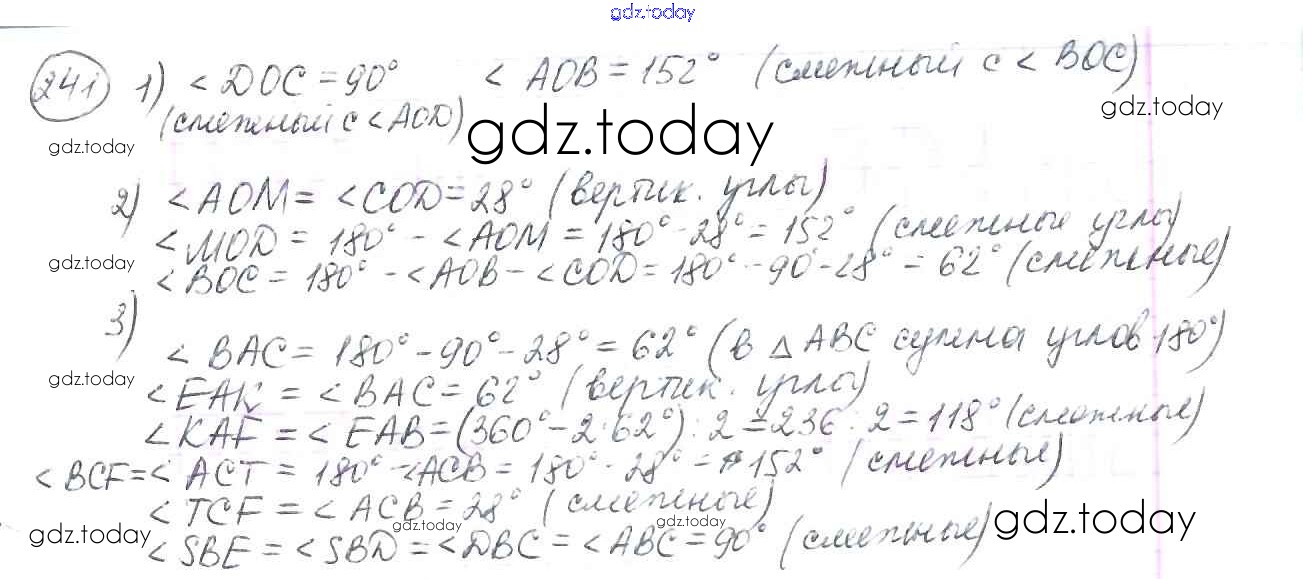 gdz.today
241 1) < DOC = 90° < AOB = 152° (смежный с < BOC)
(смежный с < AOD)
gdz.today
gdz.today
gdz.today
2) < AOM = < COD = 28° (вертик. углы)
< MOD = 180° - < AOM = 180° - 28° = 152° (смежные углы)
gdz.today
< BOC = 180° - < AOB - < COD = 180° - 90 - 28° = 62° (смежные)
3)
< BAC = 180° - 90° - 28° = 62° (в △ ABC сумма углов 180°)
gdz.today
< EAK = < BAC = 62° (вертик. углы)
< KAF = < EAB = (360° - 2·62°) : 2 = 236 : 2 = 118° (смежные)
< BCF = < ACT = 180° - < ACB = 180° - 28° = 152° (смежные)
< TCF = < ACB = 28° (смежные)
gdz.today
gdz.today
gdz.today
gdz.today
< SBE = < SBD = < DBC = < ABC = 90° (смежные)